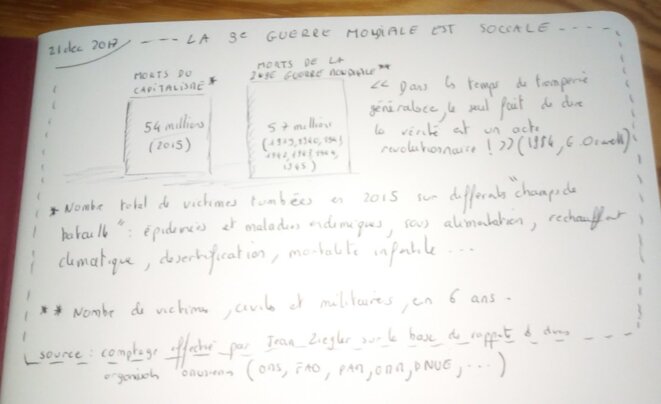 21 dec 2017
LA 3e GUERRE MONDIALE EST SOCIALE
MORTS DU
CAPITALISME *
54 millions
(2015)
MORTS DE LA
2nde GUERRE MONDIALE **
57 millions
(1939, 1940, 1941,
1942, 1943, 1944,
1945)
<< Dans les temps de tromperie
généralisée, le seul fait de dire
la vérité est un acte
revolutionnaire ! >> (1984, G. Orwell)
* Nombre total de victimes tombées en 2015 sur differents "champs de
bataille" : épidemies et maladies endemiques, sous alimentation, rechauffement
climatique, desertification, mortalité infantile ...
** Nombre de victimes, civils et militaires, en 6 ans.
source : comptage effectué par Jean Ziegler sur la base de rapports de divers
organismes onusiens (OMS, FAO, PAM, PNUE, ...)